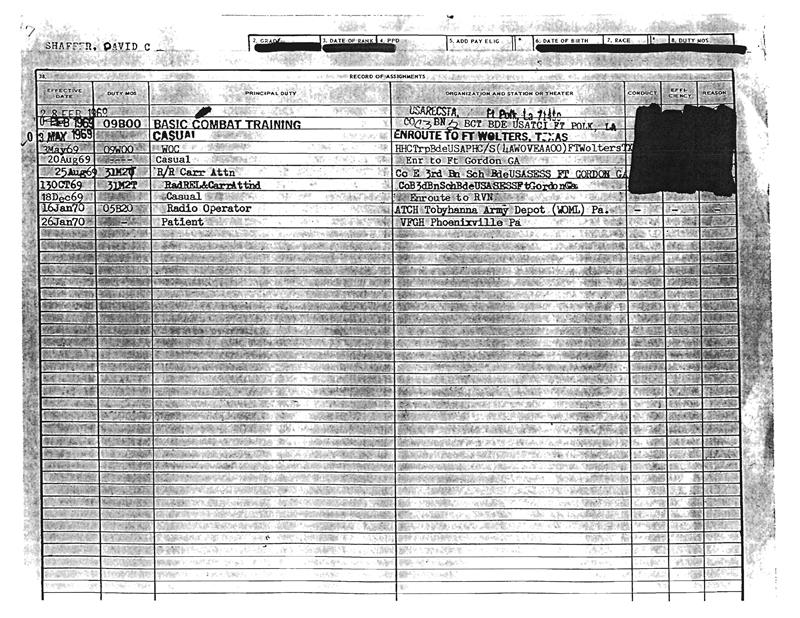 SHAFFER, DAVID C
2. GRADE 3. DATE OF RANK 4. PPD 5. ADD PAY ELIG * 6. DATE OF BIRTH 7. RACE * 8. DUTY MOS
38. RECORD OF ASSIGNMENTS
EFFECTIVE DATE DUTY MOS PRINCIPAL DUTY ORGANIZATION AND STATION OR THEATER CONDUCT EFFI- CIENCY REASON
28 FEB 1969 USARECSTA, Ft Polk, La
FEB 1969 09B00 BASIC COMBAT TRAINING BCT BDE USATCI FT POLK, LA
3 MAY 1969 CASUAL ENROUTE TO FT WOLTERS, TEXAS
3May69 09W00 WOC HHCTrpBdeUSAPHC/S(4AWOVEAAOO)FTWoltersTX
20Aug69 ----- Casual Enr to Ft Gordon GA
25Aug69 31M2T R/R Carr Attn Co E 3rd Bn Sch BdeUSASESS FT GORDON GA
13OCT69 31M2T RadREL&CarrAttnd CoB3dBnSchBdeUSASESSFtGordonGa
18Dec69 Casual Enroute to RVN
16Jan70 05B20 Radio Operator ATCH Tobyhanna Army Depot (WOML) Pa. — — —
26Jan70 — Patient VFGH Phoenixville Pa